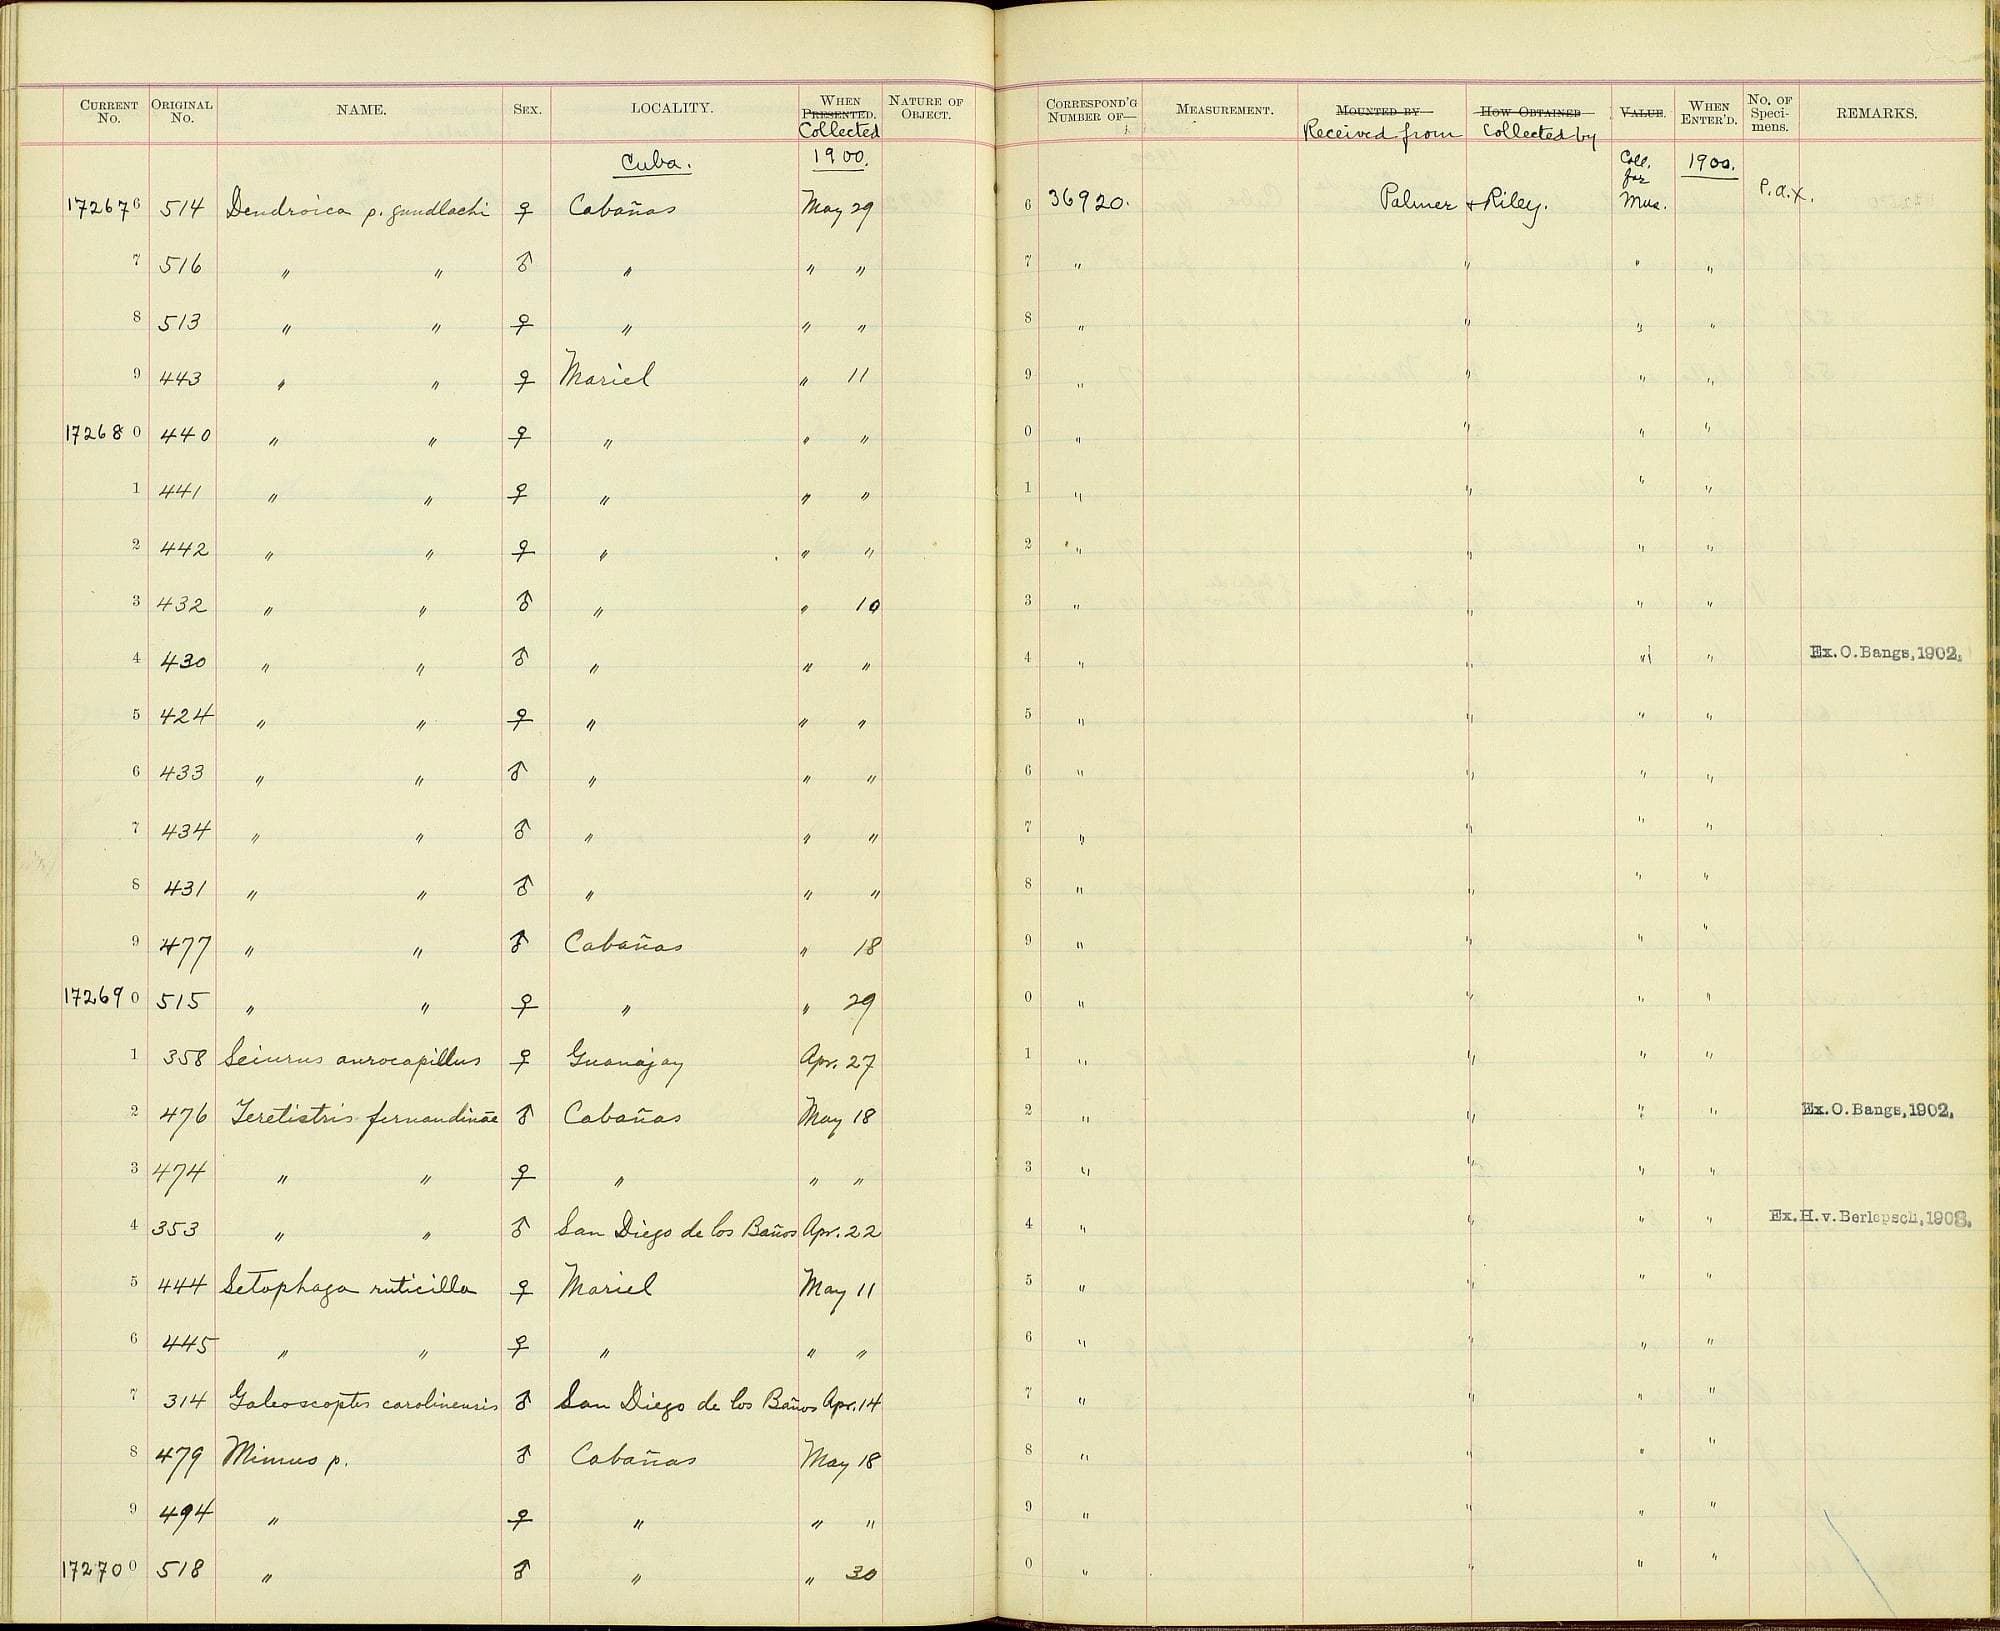 CURRENT No. ORIGINAL No. NAME. SEX. LOCALITY. WHEN PRESENTED. Collected NATURE OF OBJECT. CORRESPOND'G NUMBER OF— MEASUREMENT. MOUNTED BY Received from HOW OBTAINED Collected by VALUE. WHEN ENTER'D. No. OF Speci-mens. REMARKS.
Cuba. 1900. Coll. for 1900.
172676 514 Dendroica p. gundlachi ♀ Cabañas May 29 6 36920. Palmer + Riley. Mus. P.a.x.
7 516 " " ♂ " " " 7 " " " "
8 513 " " ♀ " " " 8 " " " "
9 443 " " ♀ Mariel " 11 9 " " " "
172680 440 " " ♀ " " " 0 " " " "
1 441 " " ♀ " " " 1 " " " "
2 442 " " ♀ " " " 2 " " " "
3 432 " " ♂ " " 10 3 " " " "
4 430 " " ♂ " " " 4 " " " " Ex.O.Bangs,1902.
5 424 " " ♀ " " " 5 " " " "
6 433 " " ♂ " " " 6 " " " "
7 434 " " ♂ " " " 7 " " " "
8 431 " " ♂ " " " 8 " " " "
9 477 " " ♂ Cabañas " 18 9 " " " "
172690 515 " " ♀ " " 29 0 " " " "
1 358 Seiurus aurocapillus ♀ Guanajay Apr. 27 1 " " " "
2 476 Teretistris fernandinae ♂ Cabañas May 18 2 " " " " Ex.O.Bangs,1902.
3 474 " " ♀ " " " 3 " " " "
4 353 " " ♂ San Diego de los Baños Apr. 22 4 " " " " Ex.H.v.Berlepsch,1908.
5 444 Setophaga ruticilla ♀ Mariel May 11 5 " " " "
6 445 " " ♀ " " " 6 " " " "
7 314 Galeoscoptes carolinensis ♂ San Diego de los Baños Apr. 14 7 " " " "
8 479 Mimus p. ♂ Cabañas May 18 8 " " " "
9 494 " ♀ " " " 9 " " " "
172700 518 " ♂ " " 30 0 " " " "